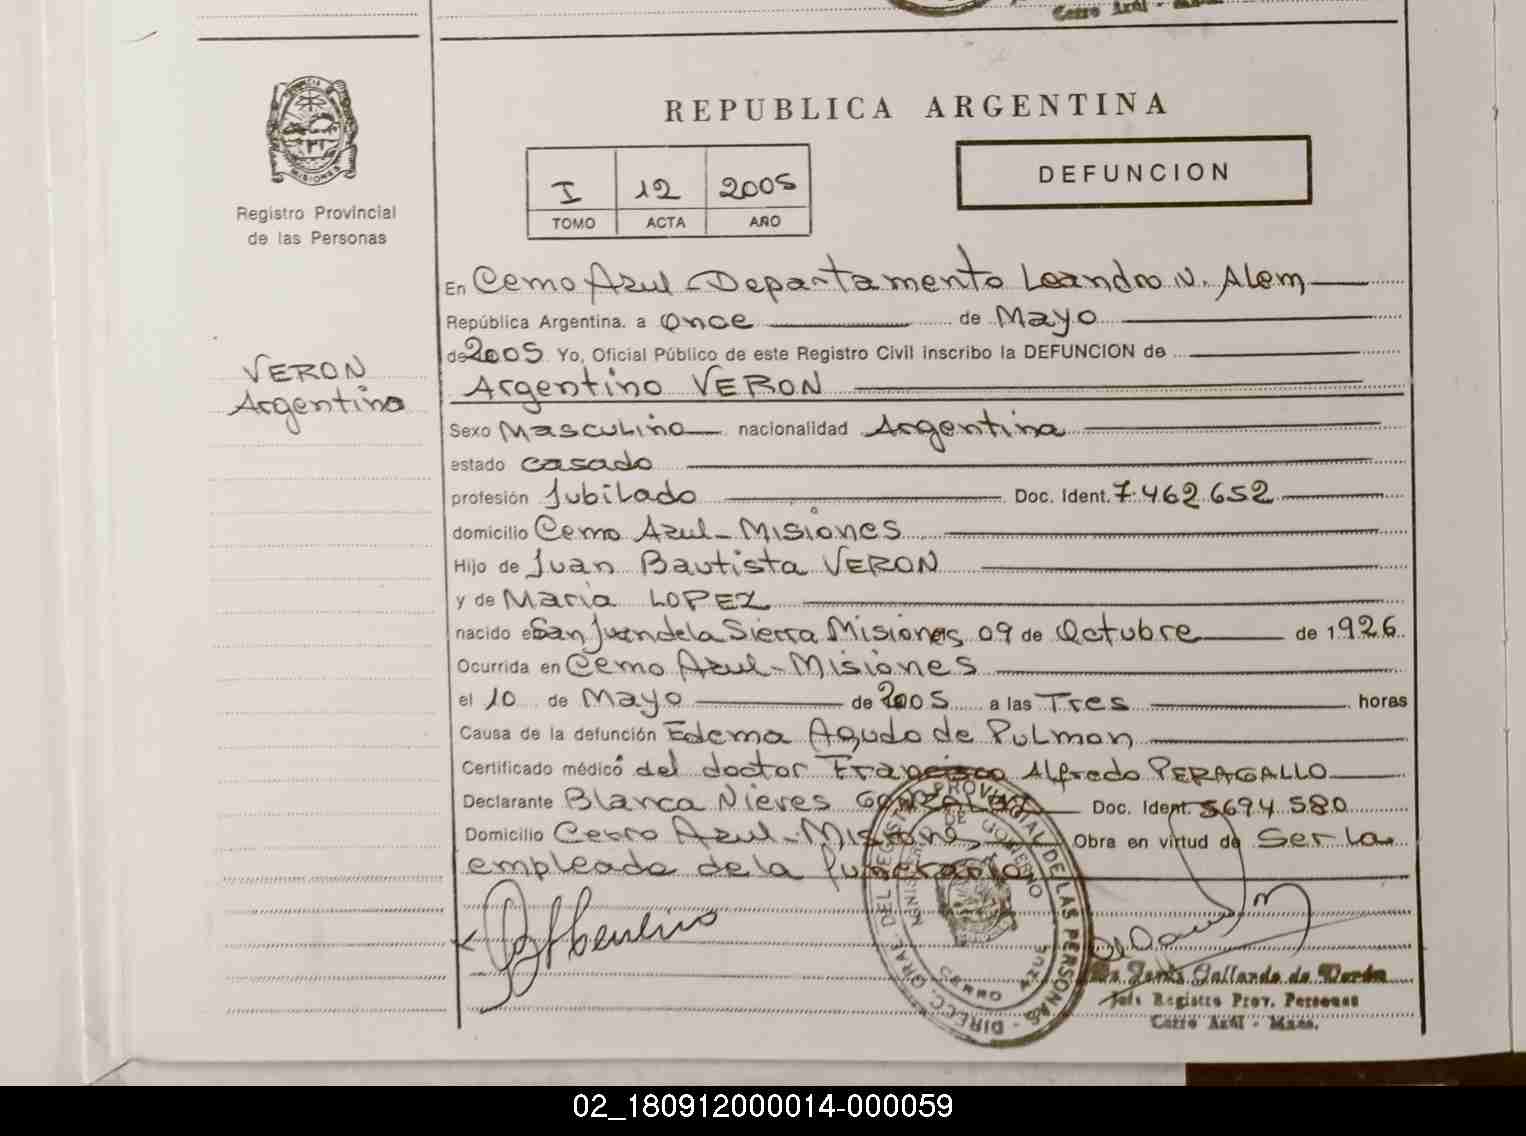 Cerro Azul - Mnes.
PROVINCIA DE
MISIONES
Registro Provincial
de las Personas
REPUBLICA ARGENTINA
I 12 2005
TOMO ACTA AÑO
DEFUNCION
VERON
Argentino
En Cerro Azul - Departamento Leandro N. Alem
República Argentina, a Once de Mayo
de 2005 Yo, Oficial Público de este Registro Civil inscribo la DEFUNCION de
Argentino VERON
Sexo Masculino nacionalidad Argentina
estado casado
profesión Jubilado Doc. Ident. 7.462.652
domicilio Cerro Azul - Misiones
Hijo de Juan Bautista VERON
y de Maria LOPEZ
nacido e San Juan de la Sierra Misiones 09 de Octubre de 1.926
Ocurrida en Cerro Azul - Misiones
el 10 de Mayo de 2005 a las Tres horas
Causa de la defunción Edema Agudo de Pulmon
Certificado médico del doctor Francisco Alfredo PERAGALLO
Declarante Blanca Nieves GONZALEZ Doc. Ident. 5694.580
Domicilio Cerro Azul - Misiones Obra en virtud de Ser la
empleada de la funeraria
DIRECC. GRAL. DEL REGISTRO PROVINCIAL DE LAS PERSONAS
MINIST. DE GOBIERNO
CERRO AZUL
Gallardo de Verón
Jefe Registro Prov. Personas
Cerro Azul - Mnes.
02_180912000014-000059